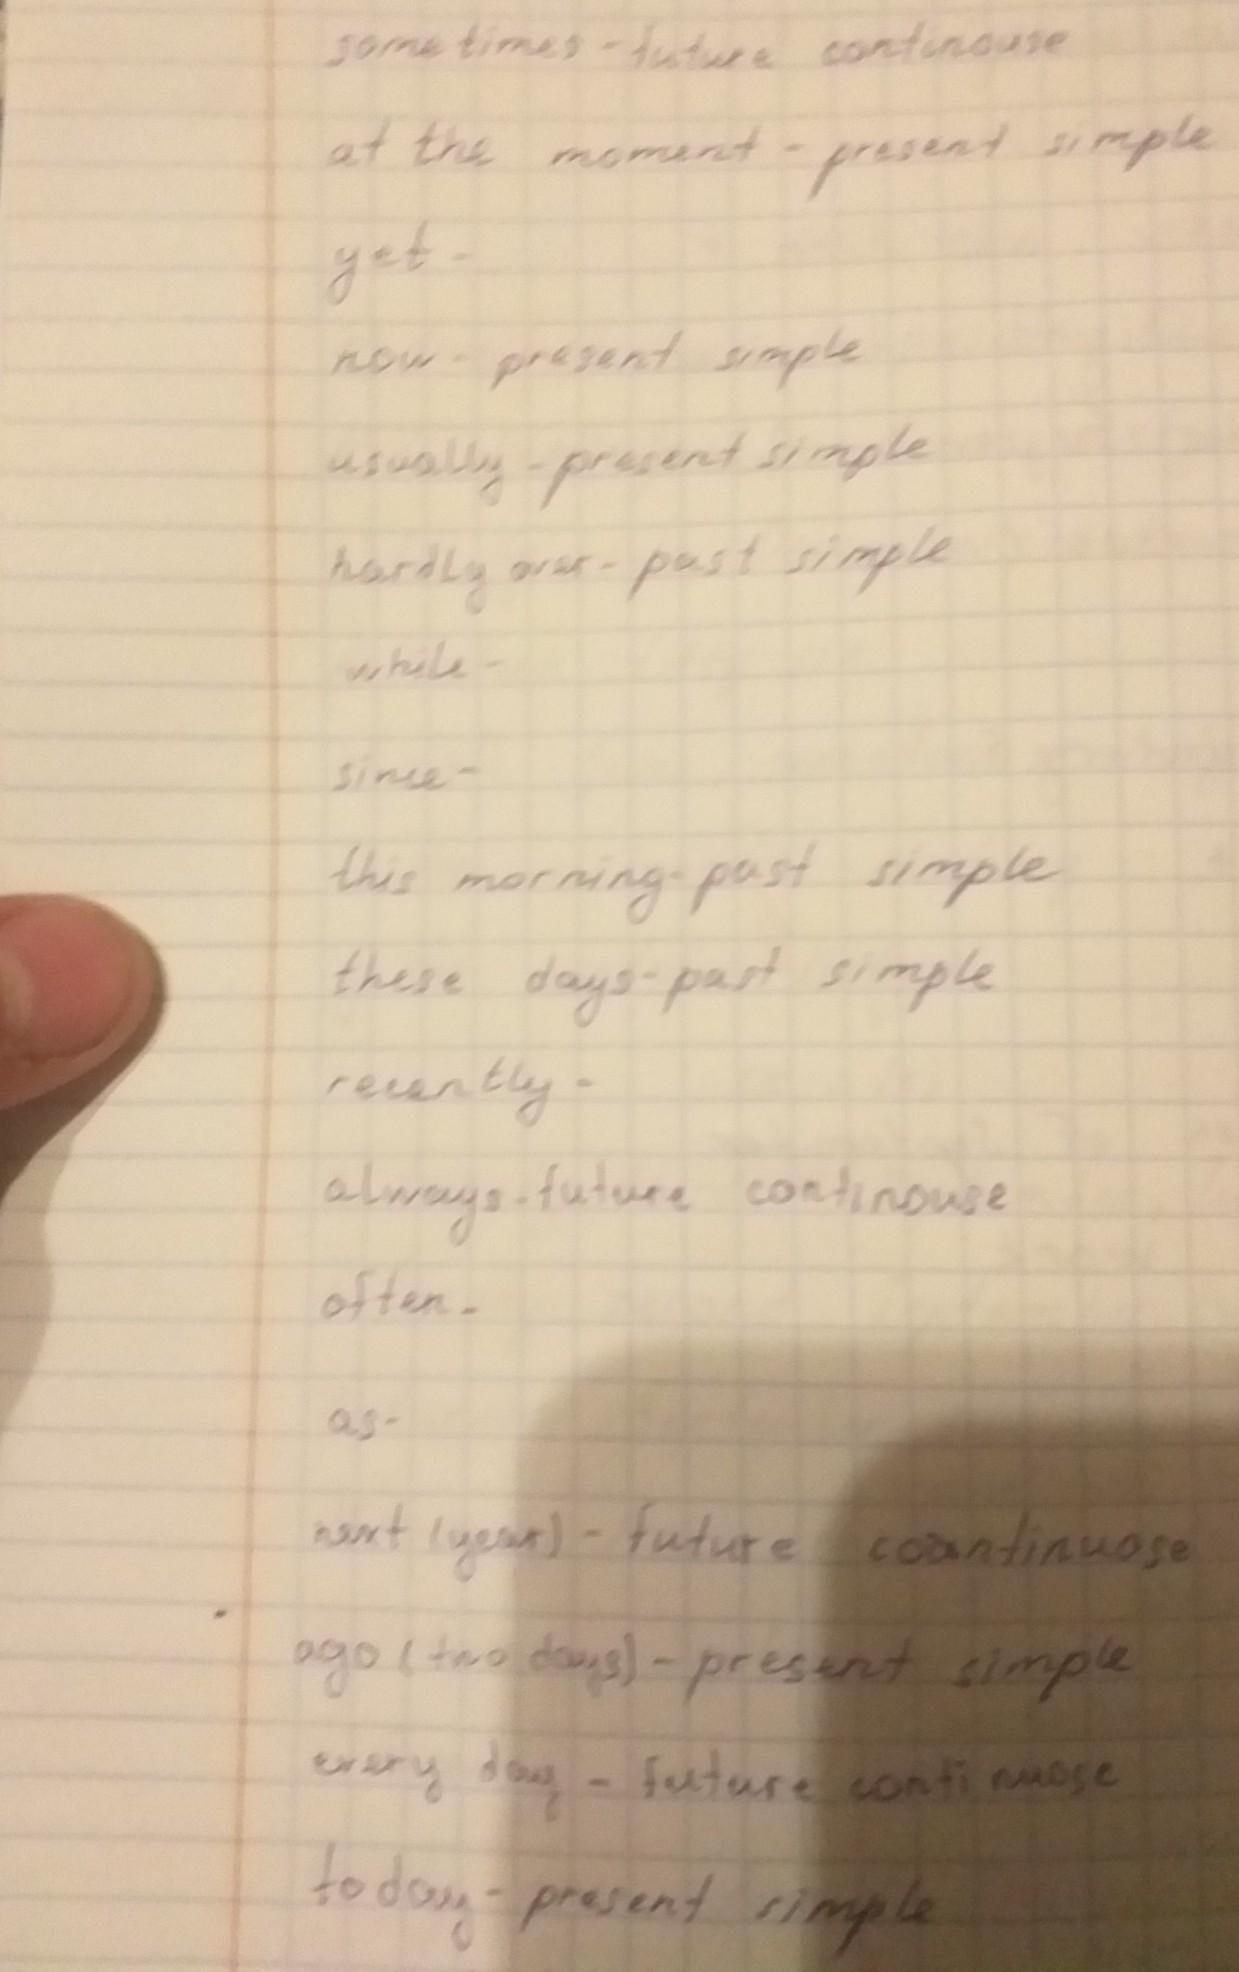 sometimes - future continouse
at the moment - present simple
yet -
now - present simple
usually - present simple
hardly ever - past simple
while -
since -
this morning - past simple
these days - past simple
recently -
always - future continouse
often -
as -
next (year) - future coantinuose
ago (two days) - present simple
every day - future continuose
today - present simple